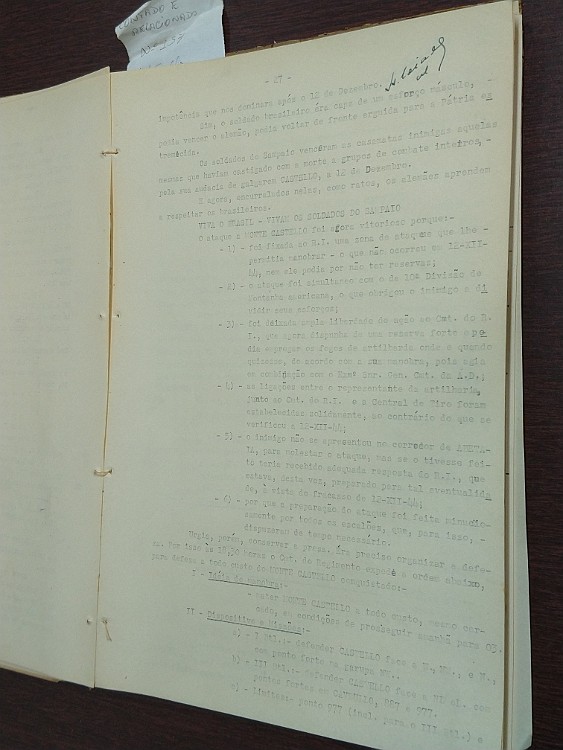 CONTADO E
RELACIONADO
- 27 -
impotência que nos dominara após o 12 de Dezembro.
Sim, o soldado brasileiro éra capaz de um esforço másculo,
podia vencer o alemão, podia voltar de fronte erguida para a Pátria es
tremecida.
Os soldados do Sampaio venceram as casamatas inimigas aquelas
mesmas que haviam castigado com a morte a grupos de combate inteiros, -
pela sua audácia de galgarem CASTELLO, a 12 de Dezembro.
E agora, encurralados nelas, como ratos, os alemães aprendem
a respeitar os brasileiros.
VIVA O BRASIL - VIVAM OS SOLDADOS DO SAMPAIO
O ataque a MONTE CASTELLO foi agora vitorioso porque:-
- 1) - foi fixada ao R.I. uma zona de ataque que lhe -
permitia manobrar - o que não ocorreu em 12-XII-
44, nem ele podia por não ter reservas;
- 2) - o ataque foi simultaneo com o da 10ª Divisão de
Montanha americana, o que obrigou o inimigo a di
vidir seus esforços;
- 3) - foi deixada ampla liberdade de ação ao Cmt. do R.
I., que agora dispunha de uma reserva forte e po
dia empregar os fogos de artilharia onde e quando
quizesse, de acordo com a sua manobra, pois agia
em combinação com o Exmº Snr. Gen. Cmt. da A.D.;
- 4) - as ligações entre o representante da artilharia,
junto ao Cmt. do R.I. e a Central de Tiro foram
estabelecidas solidamente, ao contrário do que se
verificou a 12-XII-44;
- 5) - o inimigo não se apresentou no corredor de ABETA-
IA, para molestar o ataque, mas se o tivesse fei-
to teria recebido adequada resposta do R.I., que
estava, desta vez, preparado para tal eventualida
de, à vista do fracasso de 12-XII-44;
- 6) - por que a preparação do ataque foi feita minucio-
samente por todos os escalões, que, para isso, -
dispuzeram de tempo necessário.
Urgia, porém, conservar a presa. Era preciso organizar a defe-
sa. Por isso às 18,30 horas o Cmt. do Regimento expede a ordem abaixo,
para defesa a todo custo do MONTE CASTELLO conquistado:-
I - Idéia de manobra:-
- mater MONTE CASTELLO a todo custo, mesmo cer-
cado, em condições de prosseguir amanhã para 03.
II - Dispositivo e Missões:-
a) - I Btl.:- defender CASTELLO face a N., NW., e W.;
com ponto forte na garupa NW..
b) - III Btl.:- defender CASTELLO face a NE el. com
pontos fortes em CAVRULLO, 887 e 977.
c) - Limites:- ponto 977 (incl. para o III Btl.) e